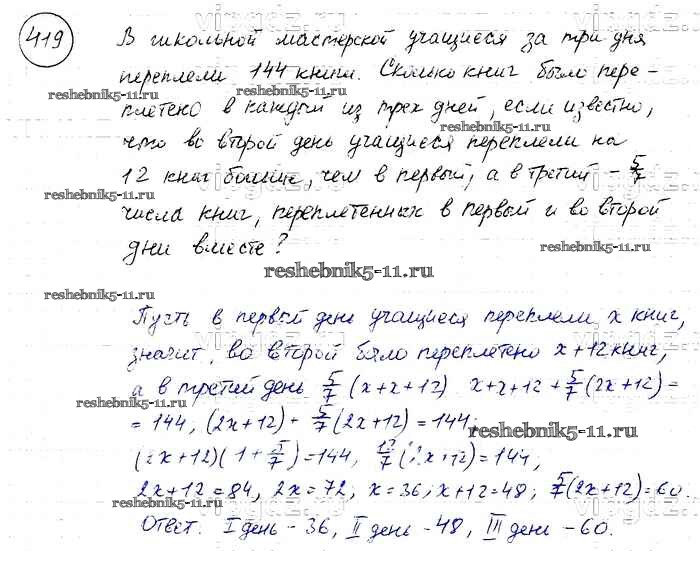 419
В школьной мастерской учащиеся за три дня
переплели 144 книги. Сколько книг было пере-
reshebnik5-11.ru
плетено в каждый из трех дней, если известно,
reshebnik5-11.ru
что во второй день учащиеся переплели на
12 книг больше, чем в первый, а в третий - 5/7
reshebnik5-11.ru
числа книг, переплетенных в первый и во второй
дни вместе?
reshebnik5-11.ru
reshebnik5-11.ru
reshebnik5-11.ru
Пусть в первый день учащиеся переплели x книг,
значит, во второй было переплетено x+12 книг,
а в третий день 5/7 (x+x+12) x+x+12+5/7(2x+12)=
reshebnik5-11.ru
= 144, (2x+12)+ 5/7(2x+12)=144;
reshebnik5-11.ru
(2x+12)(1+5/7)=144, 12/7(2x+12)=144;
2x+12=84, 2x=72, x=36, x+12=48, 5/7(2x+12)=60.
reshebnik5-11.ru
reshebnik5-11.ru
Ответ. I день - 36, II день - 48, III день - 60.